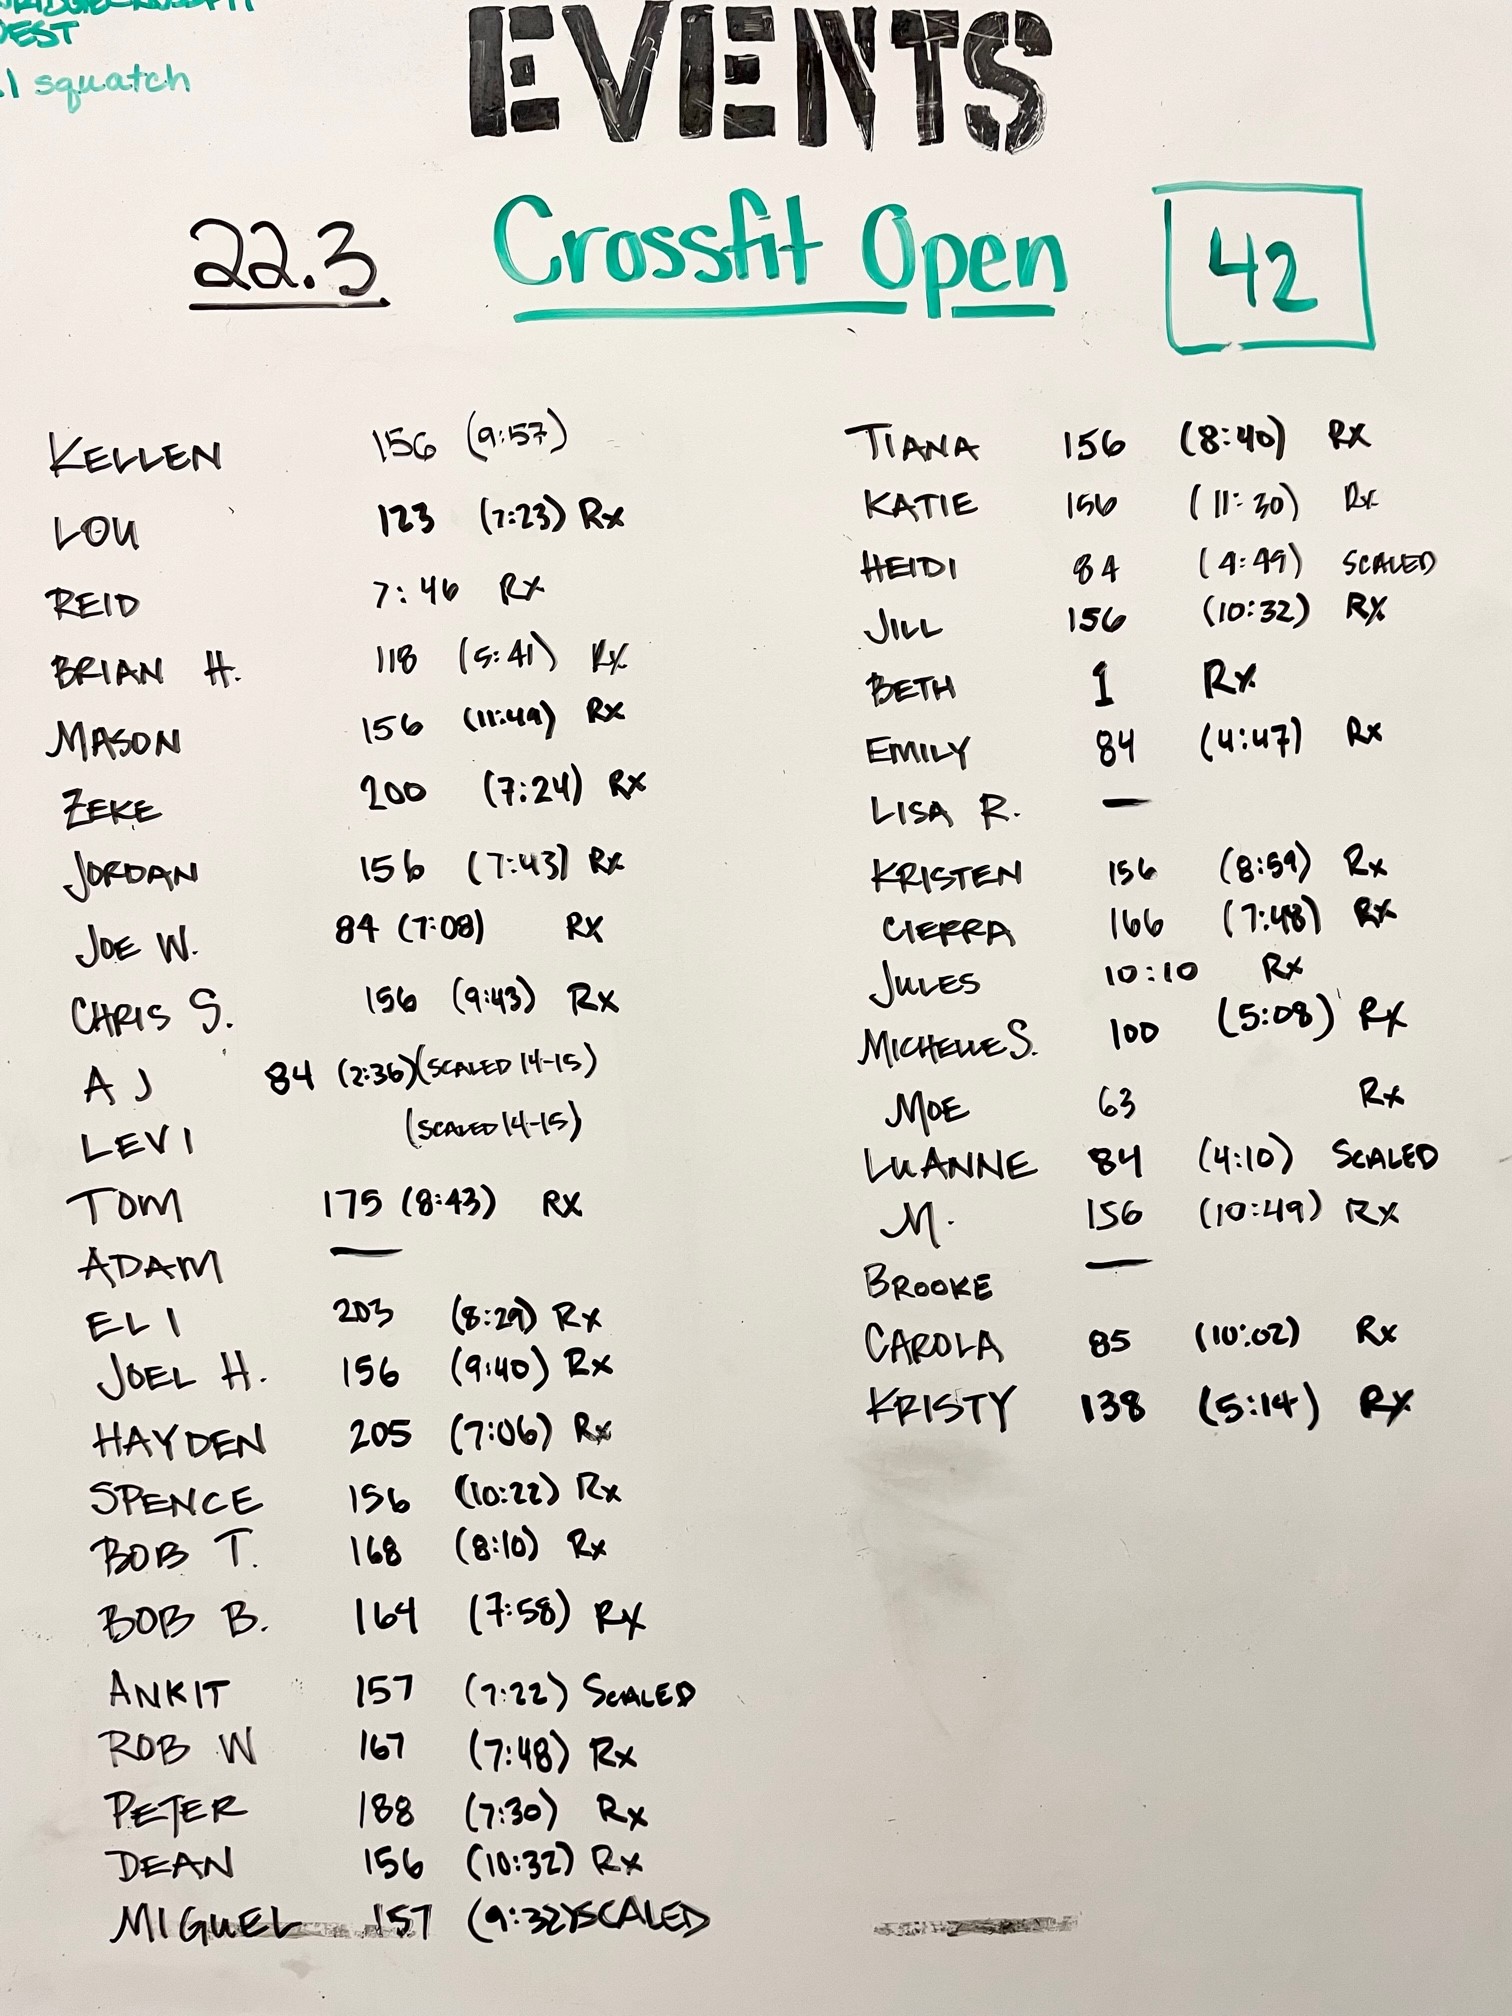 EST
squatch
EVENTS
22.3 Crossfit Open 42
KELLEN 156 (9:57)
LOU 123 (7:23) Rx
REID 7:46 Rx
BRIAN H. 118 (5:41) Rx
MASON 156 (11:49) Rx
ZEKE 200 (7:24) Rx
JORDAN 156 (7:43) Rx
JOE W. 84 (7:08) Rx
CHRIS S. 156 (9:43) Rx
AJ 84 (2:36)(SCALED 14-15)
LEVI (SCALED 14-15)
TOM 175 (8:43) RX
ADAM —
ELI 203 (8:29) Rx
JOEL H. 156 (9:40) Rx
HAYDEN 205 (7:06) Rx
SPENCE 156 (10:22) Rx
BOB T. 168 (8:10) Rx
BOB B. 164 (7:58) Rx
ANKIT 157 (7:22) SCALED
ROB W 167 (7:48) Rx
PETER 188 (7:30) Rx
DEAN 156 (10:32) Rx
MIGUEL 157 (9:32) SCALED
TIANA 156 (8:40) Rx
KATIE 156 (11:30) Rx
HEIDI 84 (4:49) SCALED
JILL 156 (10:32) Rx
BETH 1 Rx
EMILY 84 (4:47) Rx
LISA R. —
KRISTEN 156 (8:59) Rx
CIERRA 166 (7:48) Rx
JULES 10:10 Rx
MICHELLE S. 100 (5:08) Rx
MOE 63 Rx
LUANNE 84 (4:10) SCALED
M. 156 (10:49) Rx
BROOKE —
CAROLA 85 (10:02) Rx
KRISTY 138 (5:14) Rx